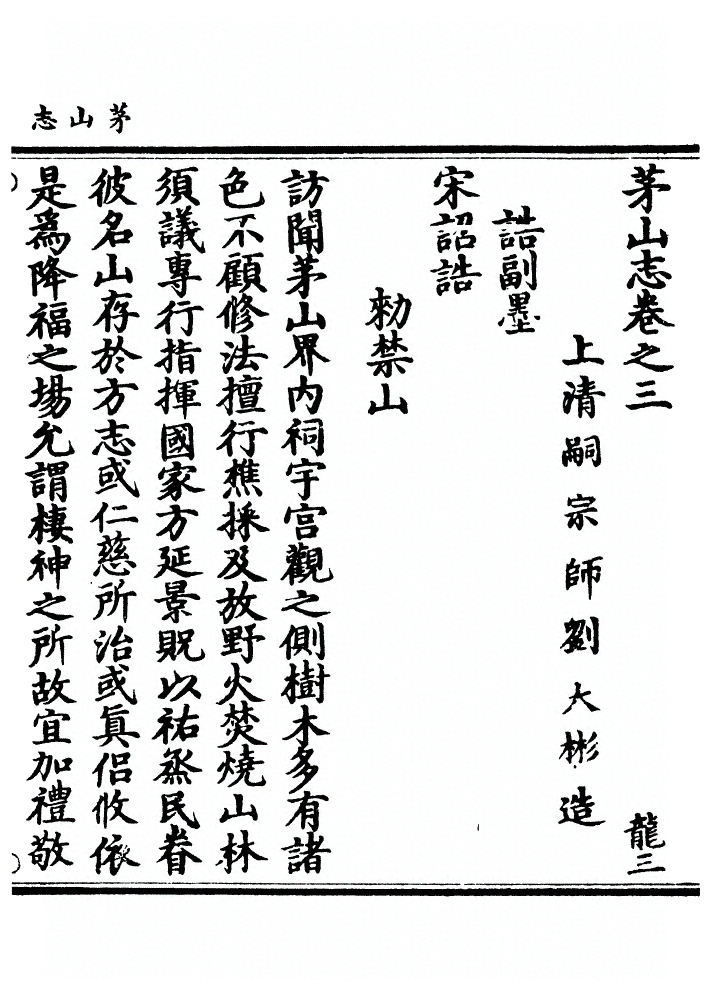 茅山志
茅山志卷之三
龍三
上清嗣宗師劉大彬造
誥副墨
宋詔誥
勑禁山
訪聞茅山界内祠宇宫觀之側樹木多有諸
色不顧修法擅行樵採及放野火焚燒山林
須議專行指揮國家方延景貺以祐烝民眷
彼名山存於方志或仁慈所治或真侣攸依
是爲降福之場允謂棲神之所故宜加禮敬